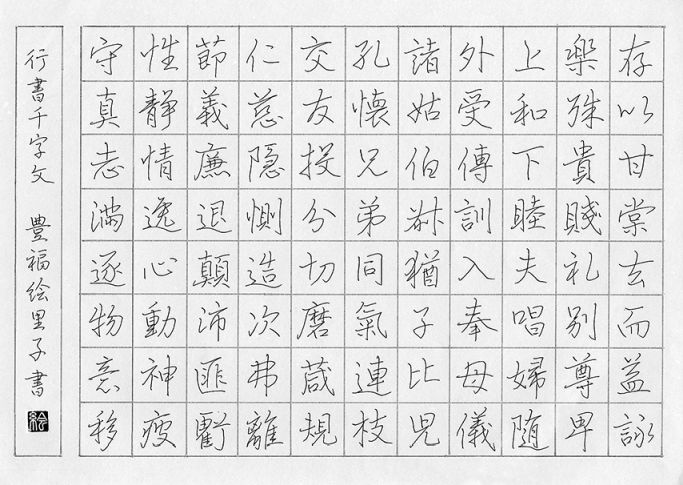 存以甘棠去而益詠
楽殊貴賤礼別尊卑
上和下睦夫唱婦随
外受傅訓入奉母儀
諸姑伯叔猶子比児
孔懐兄弟同氣連枝
交友投分切磨箴規
仁慈隠惻造次弗離
節義廉退顛沛匪虧
性静情逸心動神疲
守真志満逐物意移
行書千字文 豊福絵里子書
絵